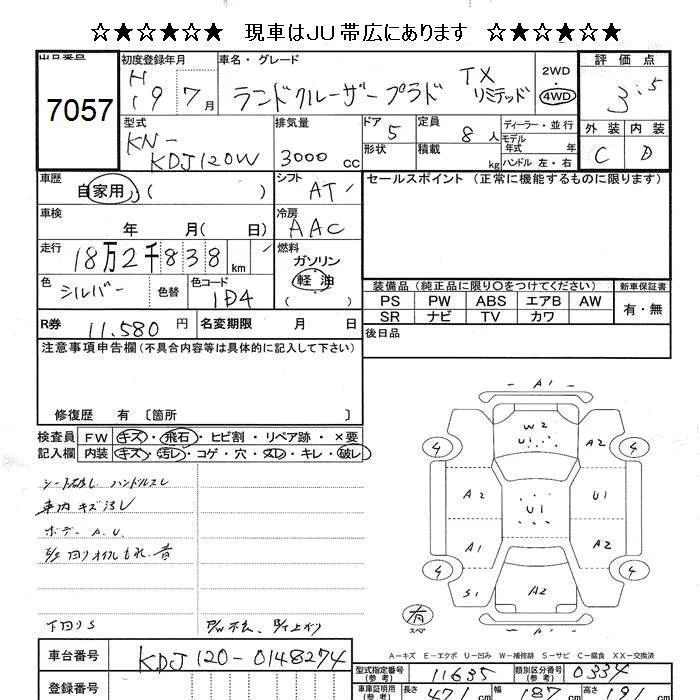 ☆★☆★☆★ 現車はJU帯広にあります ☆★☆★☆★
出品番号 初度登録年月 車名・グレード 評価点
7057 H19 7月 ランドクルーザープラド TXリミテッド 2WD 4WD 3.5
型式 排気量 ドア 定員 ディーラー・並行 外装 内装
KN-KDJ120W 3000cc 5 8人 モデル年式 年 C D
形状 積載 kg ハンドル 左・右
車歴 自家用 ( ) シフト AT セールスポイント (正常に機能するものに限ります)
車検 年 月( 日) 冷房 AAC
走行 18万2千838km 燃料 ガソリン 軽油 ( )
色 シルバー 色替 色コード 1D4
装備品(純正品に限り○をつけてください) 新車保証書
PS PW ABS エアB AW 有・無
SR ナビ TV カワ
R券 11,580円 名変期限 月 日 後日品
注意事項申告欄(不具合内容等は具体的に記入して下さい)
修復歴 有 〔箇所 〕
検査員 FW キズ・飛石・ヒビ割・リペア跡・×要
記入欄 内装 キズ・汚レ・コゲ・穴・スレ・キレ・破レ
シート破レ ハンドルスレ
車内キズ汚レ
ボデーA.U
回りオイルもれ
下回りS
A1
W2
U1
4 A2 4
A2 U1 U1
A1 A2
4 4
S1 A2
有 スペア
A
A－キズ E－エクボ U－凹み W－補修跡 S－サビ C－腐食 XX－交換済
車台番号 KDJ120-0148274 型式指定番号(参考) 11635 類別区分番号(参考) 0334
登録番号 車庫証明用(参考) 長さ 471cm 幅 187cm 高さ 191cm